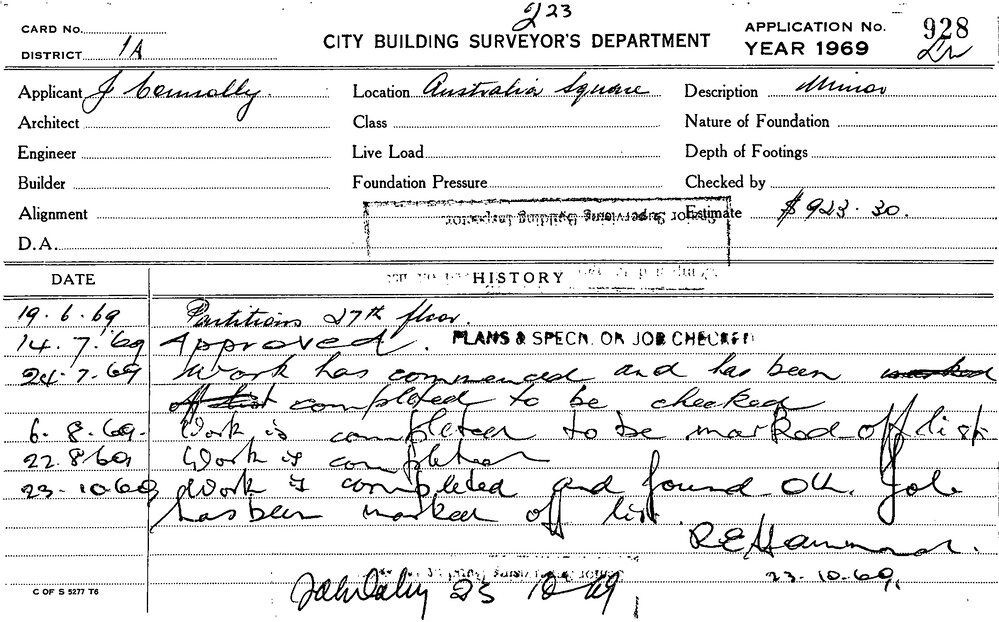 223
CARD No.
CITY BUILDING SURVEYOR'S DEPARTMENT
APPLICATION No. 928
DISTRICT 1A
YEAR 1969
Applicant J Connolly.
Location Australia Square
Description Minor
Architect
Class
Nature of Foundation
Engineer
Live Load
Depth of Footings
Builder
Foundation Pressure
Checked by
Alignment
Senior Supervising Building Inspector
Estimate $923.30.
D.A.
DATE
HISTORY
19.6.69 Partitions 27th floor.
14.7.69 Approved. PLANS & SPECN. ON JOB CHECKED
24-7-69 Work has commenced and has been marked
off list completed to be checked
6.8.69. Work is completed to be marked off list
22.8.69 Work is completed
23-10-69 Work is completed and found OK. Job
has been marked off list
R E Hammond.
23-10-69.
23 10 69
C OF S 5277 T6